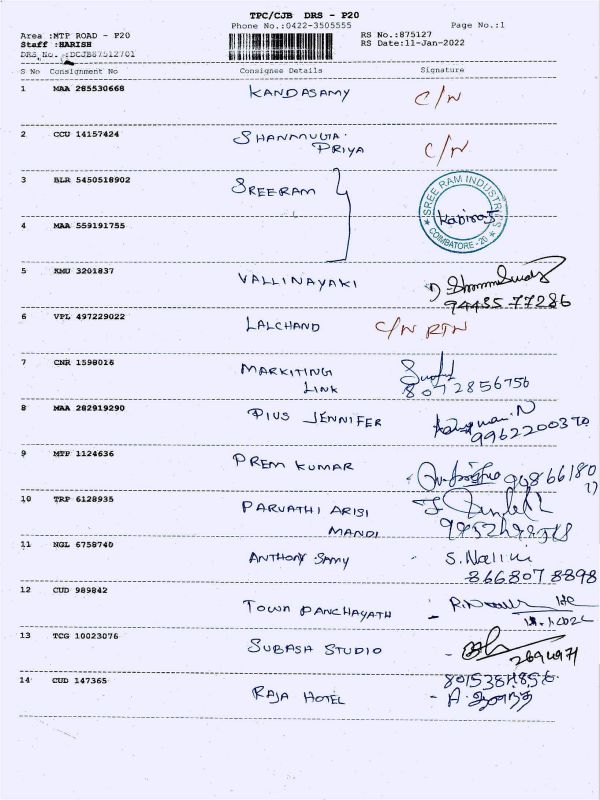 TPC/CJB DRS - P20
Phone No.:0422-3505555 Page No.:1
Area :MTP ROAD - P20 RS No.:875127
Staff :HARISH RS Date:11-Jan-2022
DRS No. :DCJB87512701
S No Consignment No Consignee Details Signature
1 MAA 285530668 KANDASAMY C/N
2 CCU 14157424 SHANMUGA
PRIYA C/N
3 BLR 5450518902 SREERAM
SREE RAM INDUSTRIES
COIMBATORE - 20
4 MAA 559191755
5 KMU 3201837 VALLINAYAKI
94435 77286
6 VPL 497229022 LALCHAND C/N RTN
7 CNR 1598016 MARKITING
LINK 8072856756
8 MAA 282919290 PIUS JENNIFER
9962200370
9 MTP 1124636 PREM KUMAR
10 TRP 6128935 PARVATHI ARISI
MANDI
11 NGL 6758740 ANTHONY SAMY S. Nalini
866807 8898
12 CUD 989842 TOWN PANCHAYATH
13 TCG 10023076 SUBASH STUDIO
14 CUD 147365 RAJA HOTEL